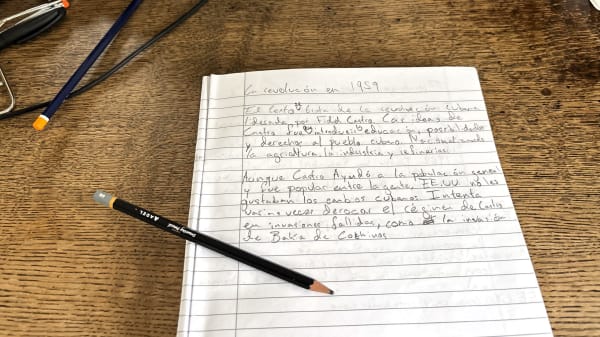 La revolución en 1959
El Centro lista de la revolución cubana
liderada por Fidel Castro. Las ideas de
Castro fue introducir educación, posibilidades
y derechos al pueblo cubano. Nacionalizando
la agricultura, la industria y refinerías.
Aunque Castro Ayudó a la población general
y fue popular entre la gente, EE.UU no les
gustaban los cambios cubanos. Intenta
varias veces derocar el régimen de Castro
en invasiones fallidas, como la invasión
de Bahía de Cochinos